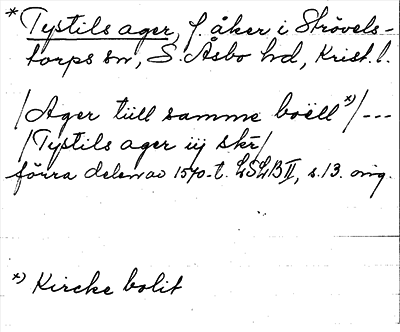 * Tystils ager, f. åker i Strövels-
torps sn, S. Åsbo hd, Krist. l.
/Ager tiill samme boëll *)/ ---
/Tystils ager iij skr/
förra delen av 1570-t. LSLB II, s. 13. orig.
*) Kircke bolit